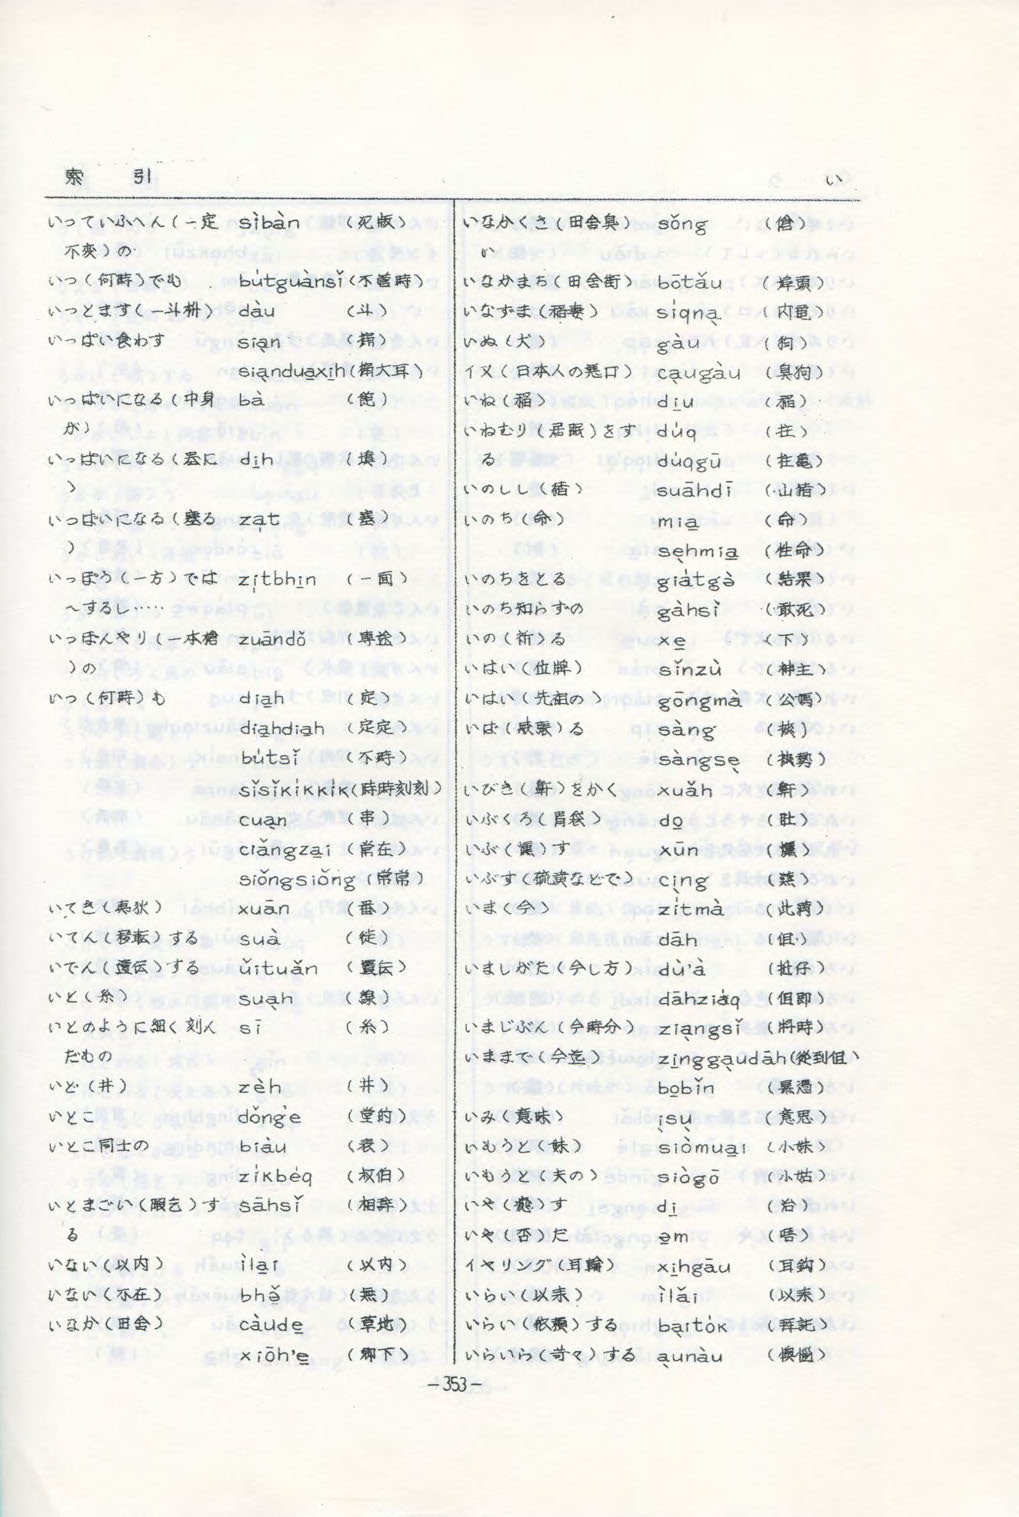 索　引　い
いっていふへん(一定 sìbàn (死版)
不変)の
いつ(何時)でも bu̍tguànsǐ (不管時)
いっとます(一斗枡) dàu (斗)
いっぱい食わす siạn
siạnduaxih
いっぱいになる(中身 bà (飽)
が)
いっぱいになる(器に dịh (塡)
)
いっぱいになる(塞る zạt (塞)
)
いっぽう(一方)では zịtbhịn (一面)
～するし‥‥
いっぽんやり(一本槍 zuāndǒ (専途)
)の
いつ(何時)も diạh (定)
diạhdiạh (定定)
bu̍tsǐ (不時)
sǐsǐkikkik (時時刻刻)
cuạn (串)
ciǎngzại (常在)
siǒngsiǒng (常常)
いてき(夷狄) xuān (番)
いてん(移転)する suà (徙)
いでん(遺伝)する ǔituǎn (遺伝)
いと(糸) suạh (線)
いとのように細く刻ん sī (糸)
だもの
いど(井) zèh (井)
いとこ dǒng'e (堂的)
いとこ同士の biàu (表)
zikbéq (叔伯)
いとまごい(暇乞)す sāhsǐ (相辞)
る
いない(以内) ìlại (以内)
いない(不在) bhě (無)
いなか(田舎) càude (草地)
xiōh'e (郷下)
いなかくさ(田舎臭) sǒng (傖)
い
いなかまち(田舎街) bōtǎu (埠頭)
いなずま(稲妻) siqnạ
いぬ(犬) gàu (狗)
イヌ(日本人の悪口) cạugàu (臭狗)
いね(稲) dịu (稲)
いねむり(居眠)をす
る
いのしし(猪) suāhdī (山猪)
いのち(命) miạ (命)
sẹhmiạ (性命)
いのちをとる giátgò (結果)
いのち知らずの gàhsì (敢死)
いの(祈)る xẹ (下)
いはい(位牌) sǐnzù (神主)
いはい(先祖の) gōngmà (公媽)
いば(威張)る sàng
sàngsẹ
いびき(鼾)をかく xuǎh (鼾)
いぶくろ(胃袋) dọ (肚)
いぶ(燻)す xūn (燻)
いぶす(硫黄などで) cịng
いま(今) zítmà
dāh
いましがた(今し方) dù'à
dāhziáq
いまじぶん(今時分) ziạngsǐ (将時)
いままで(今迄)
bọbǐn
いみ(意味) ịsụ (意思)
いもうと(妹) siòmuại (小妹)
いもうと(夫の) siògō (小姑)
いや(癒)す dị (治)
いや(否)だ ẹm (唔)
イヤリング(耳輪) xịhgāu (耳鈎)
いらい(以来) ìlǎi (以来)
いらい(依頼)する bạitók (拝託)
いらいら(苛々)する ạunàu (懊惱)
—353—